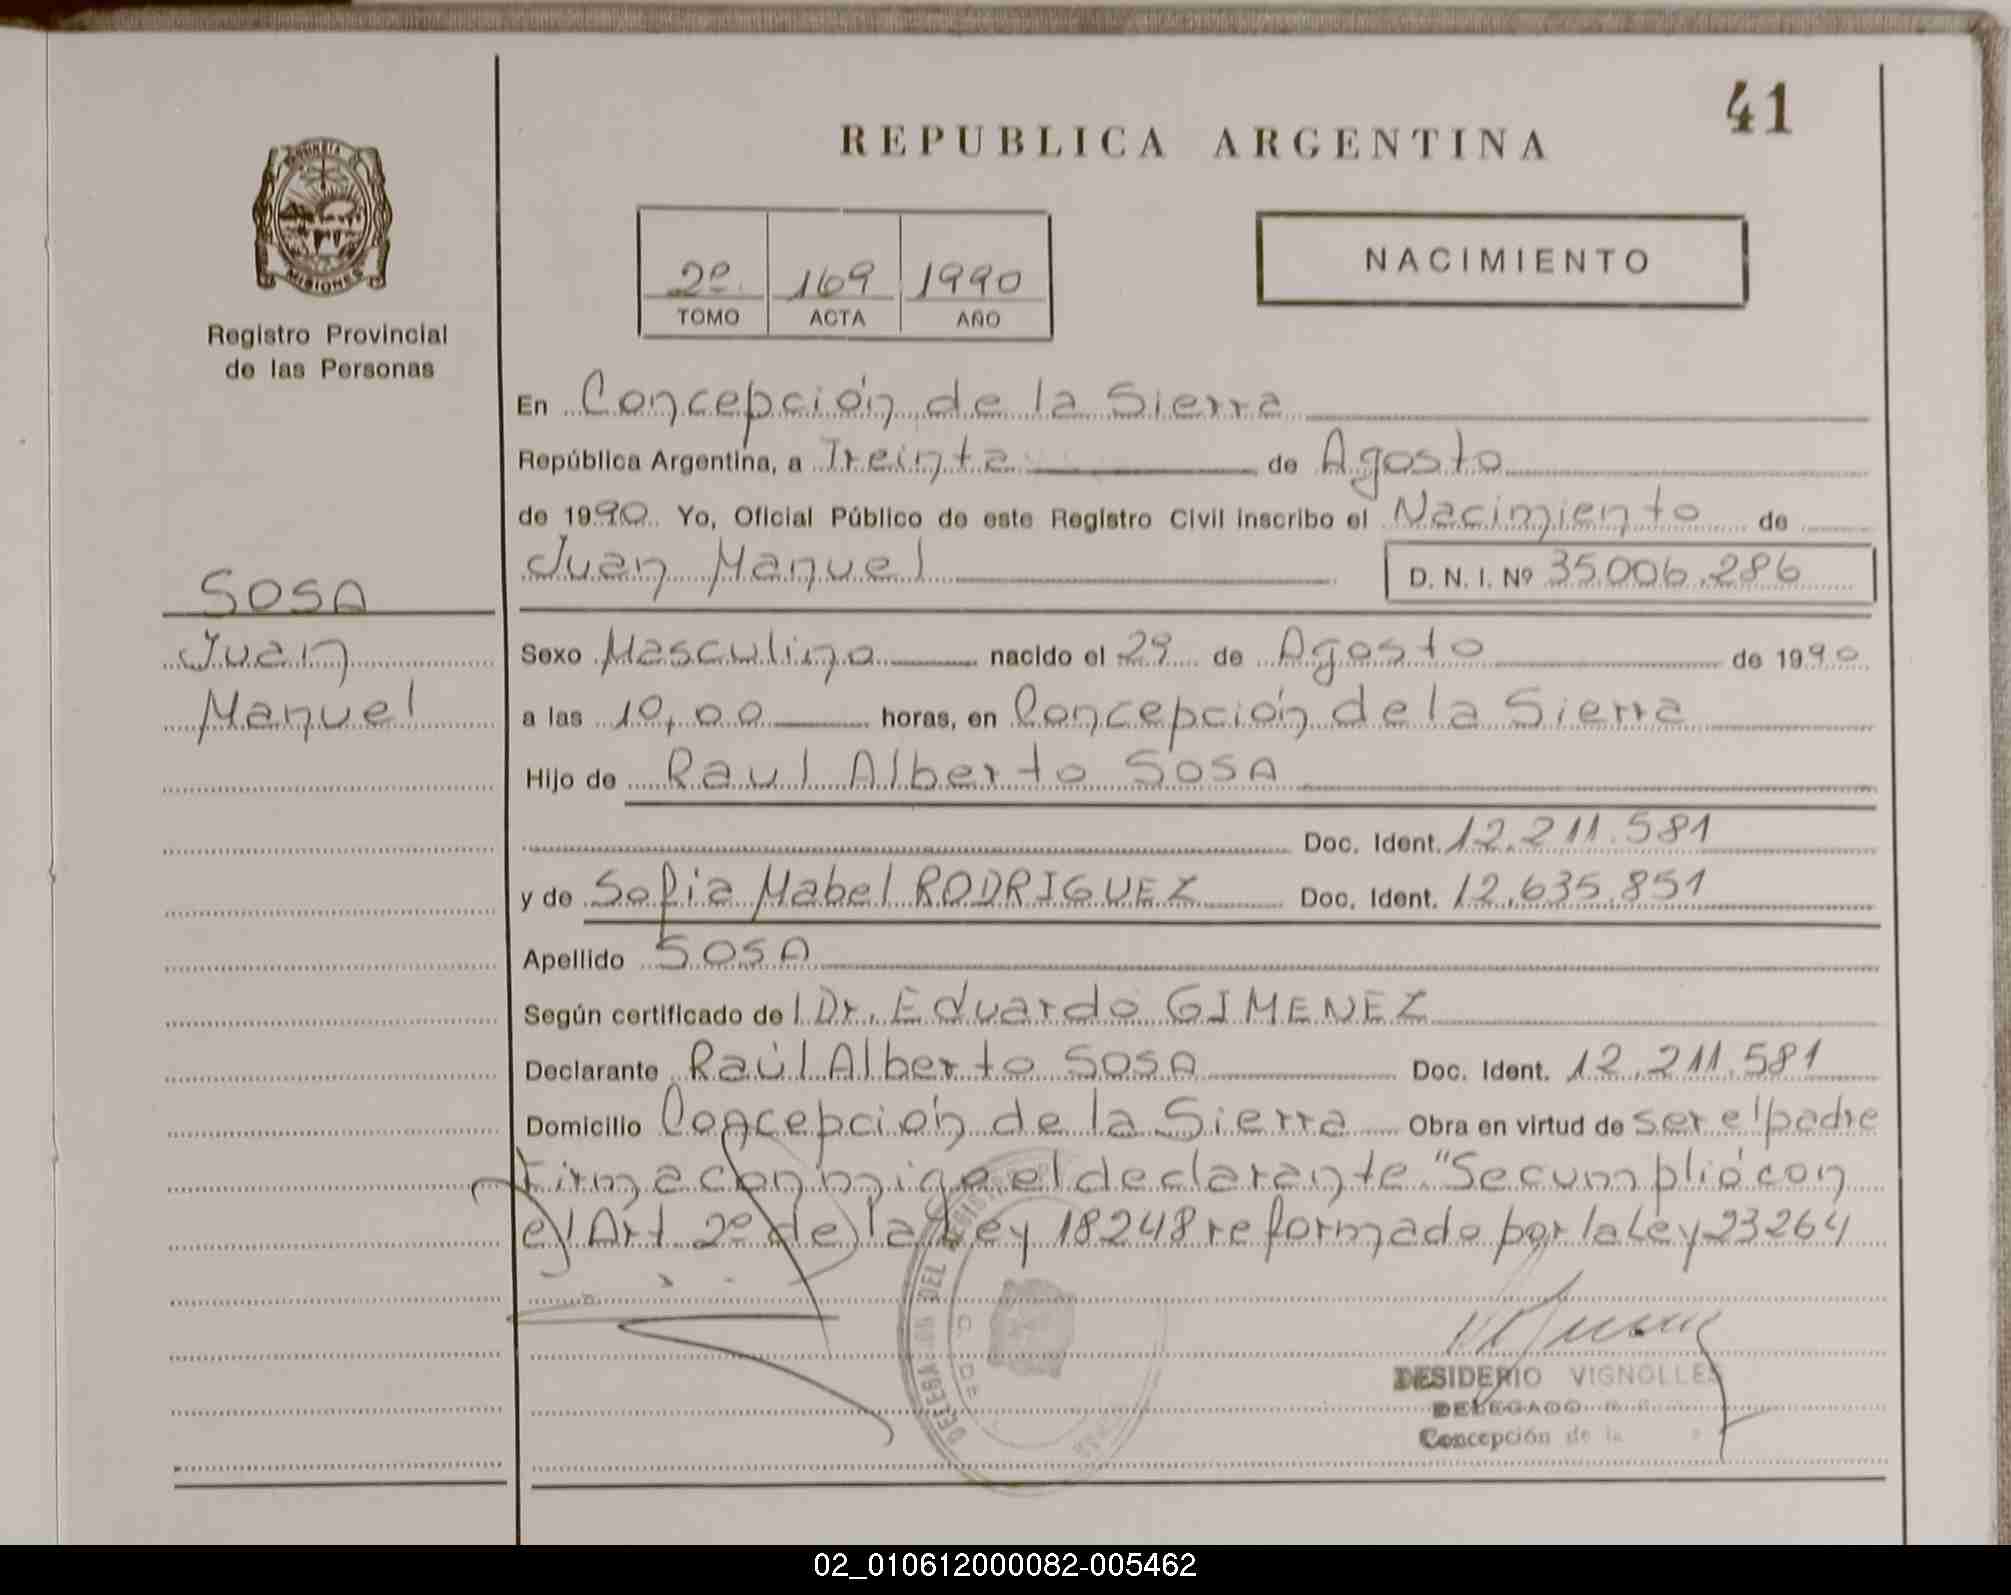 41
REPUBLICA ARGENTINA
PROVINCIA
MISIONES
Registro Provincial
de las Personas
2º 169 1990
TOMO ACTA AÑO
NACIMIENTO
En Concepción de la Sierra
República Argentina, a Treinta de Agosto
de 1990. Yo, Oficial Público de este Registro Civil inscribo el Nacimiento de
Juan Manuel D. N. I. Nº 35.006.286
SOSA
Juan
Manuel
Sexo Masculino nacido el 29 de Agosto de 1990
a las 10,00 horas, en Concepción de la Sierra
Hijo de Raul Alberto SOSA
Doc. Ident. 12.211.581
y de Sofia Mabel RODRIGUEZ Doc. Ident. 12.635.851
Apellido SOSA
Según certificado del Dr. Eduardo GIMENEZ
Declarante Raúl Alberto SOSA Doc. Ident. 12.211.581
Domicilio Concepción de la Sierra Obra en virtud de ser el padre
Firma conmigo el declarante. "Se cumplió con
el Art. 2º de la Ley 18248 reformado por la Ley 23264
DEL REGISTRO
C. DE
DESIDERIO VIGNOLLES
DELEGADO
Concepción de la
02_010612000082-005462